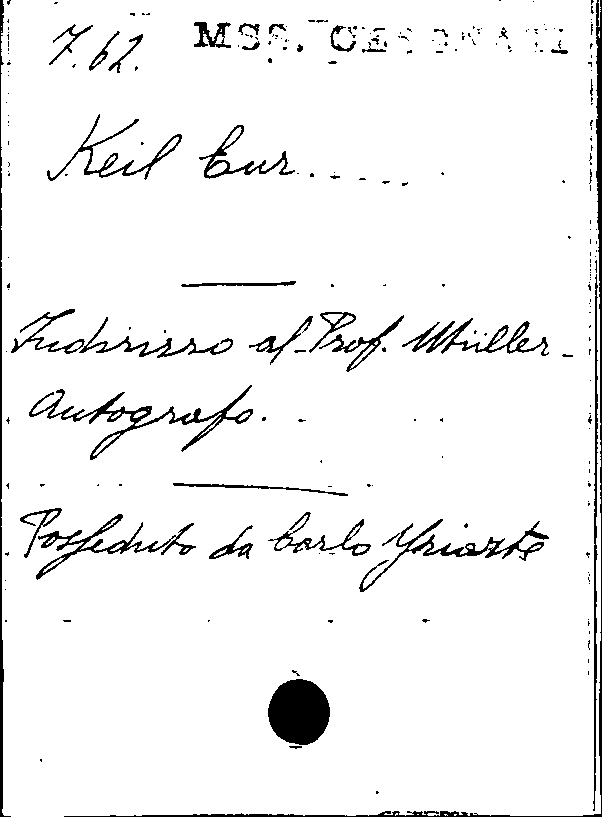 7.62. MSS. CESSNATI
Keil Eur.....
Indirizzo al Prof. Müller-
Autografo.
Posseduto da Carlo Yriarte